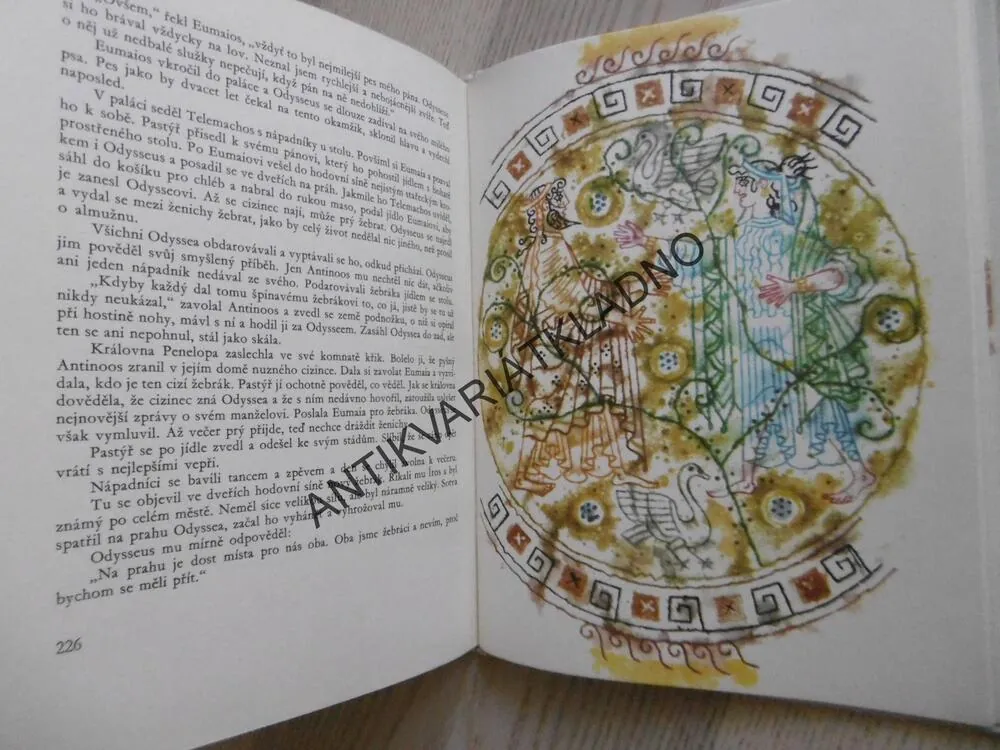 „Ovšem,“ řekl Eumaios, „vždyť to byl nejmilejší pes mého pána. Odysseus
si ho brával vždycky na lov. Neznal jsem rychlejší a nebojácnější zvíře. Teď
o něj už nedbalé služky nepečují, když pán na ně nedohlíží.“
Eumaios vkročil do paláce a Odysseus se dlouze zadíval na svého milého
psa. Pes jako by dvacet let čekal na tento okamžik, sklonil hlavu a vydechl
naposled.
V paláci seděl Telemachos s nápadníky u stolu. Povšiml si Eumaia a pozval
ho k sobě. Pastýř přisedl k svému pánovi, který ho pohostil jídlem s bohatě
prostřeného stolu. Po Eumaiovi vešel do hodovní síně nejistým stařeckým kro-
kem i Odysseus a posadil se ve dveřích na práh. Jakmile ho Telemachos uviděl,
sáhl do košíku pro chléb a nabral do rukou maso, podal jídlo Eumaiovi, aby
je zanesl Odysseovi. Až se cizinec nají, může prý žebrat. Odysseus se najedl
a vydal se mezi ženichy žebrat, jako by celý život nedělal nic jiného, než prosil
o almužnu.
Všichni Odyssea obdarovávali a vyptávali se ho, odkud přichází. Odysseus
jim pověděl svůj smyšlený příběh. Jen Antinoos mu nechtěl nic dát, ačkoliv
ani jeden nápadník nedával ze svého. Podarovávali žebráka jídlem se stolu.
„Kdyby každý dal tomu špinavému žebrákovi to, co já, jistě by se tu už
nikdy neukázal,“ zavolal Antinoos a zvedl se země podnožku, o niž si opíral
při hostině nohy, mávl s ní a hodil ji za Odysseem. Zasáhl Odyssea do zad, ale
ten se ani nepohnul, stál jako skála.
Královna Penelopa zaslechla ve své komnatě křik. Bolelo ji, že pyšný
Antinoos zranil v jejím domě nuzného cizince. Dala si zavolat Eumaia a vyzví-
dala, kdo je ten cizí žebrák. Pastýř jí ochotně pověděl, co věděl. Jak se královna
dověděla, že cizinec zná Odyssea a že s ním nedávno hovořil, zatoužila uslyšet
nejnovější zprávy o svém manželovi. Poslala Eumaia pro žebráka. Odysseus se
však vymluvil. Až večer prý přijde, teď nechce dráždit ženichy.
Pastýř se po jídle zvedl a odešel ke svým stádům. Slíbil, že se zítra opět
vrátí s nejlepšími vepři.
Nápadníci se bavili tancem a zpěvem a den se chýlil zvolna k večeru.
Tu se objevil ve dveřích hodovní síně nový žebrák. Říkali mu Iros a byl
známý po celém městě. Neměl sice velikou sílu, ale byl náramně veliký. Sotva
spatřil na prahu Odyssea, začal ho vyhánět a vyhrožoval mu.
Odysseus mu mírně odpověděl:
„Na prahu je dost místa pro nás oba. Oba jsme žebráci a nevím, proč
bychom se měli přít.“
226
ANTIKVARIÁTKLADNO